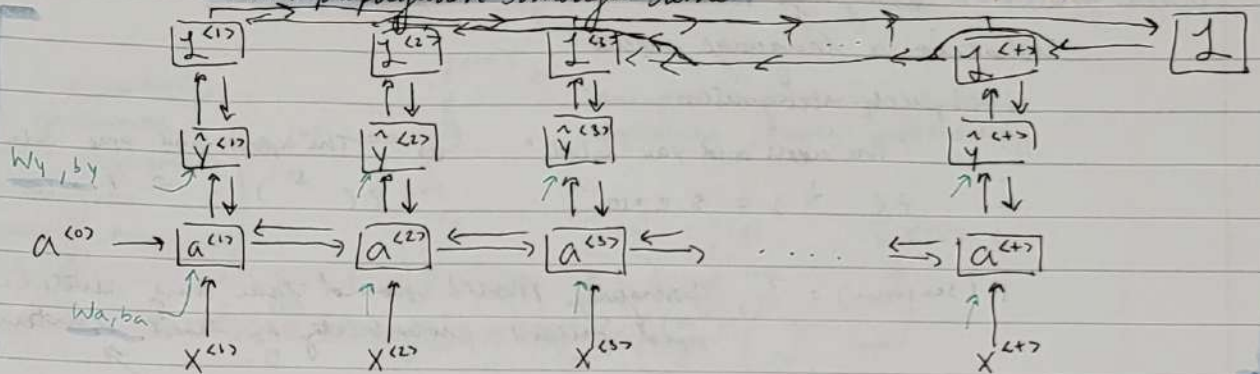 ℒ^<1> ℒ^<2> ℒ^<3> ℒ^<t> ℒ
ŷ^<1> ŷ^<2> ŷ^<3> ŷ^<t>
Wy, by
a^<0> a^<1> a^<2> a^<3> . . . . . a^<t>
Wa, ba
x^<1> x^<2> x^<3> x^<t>